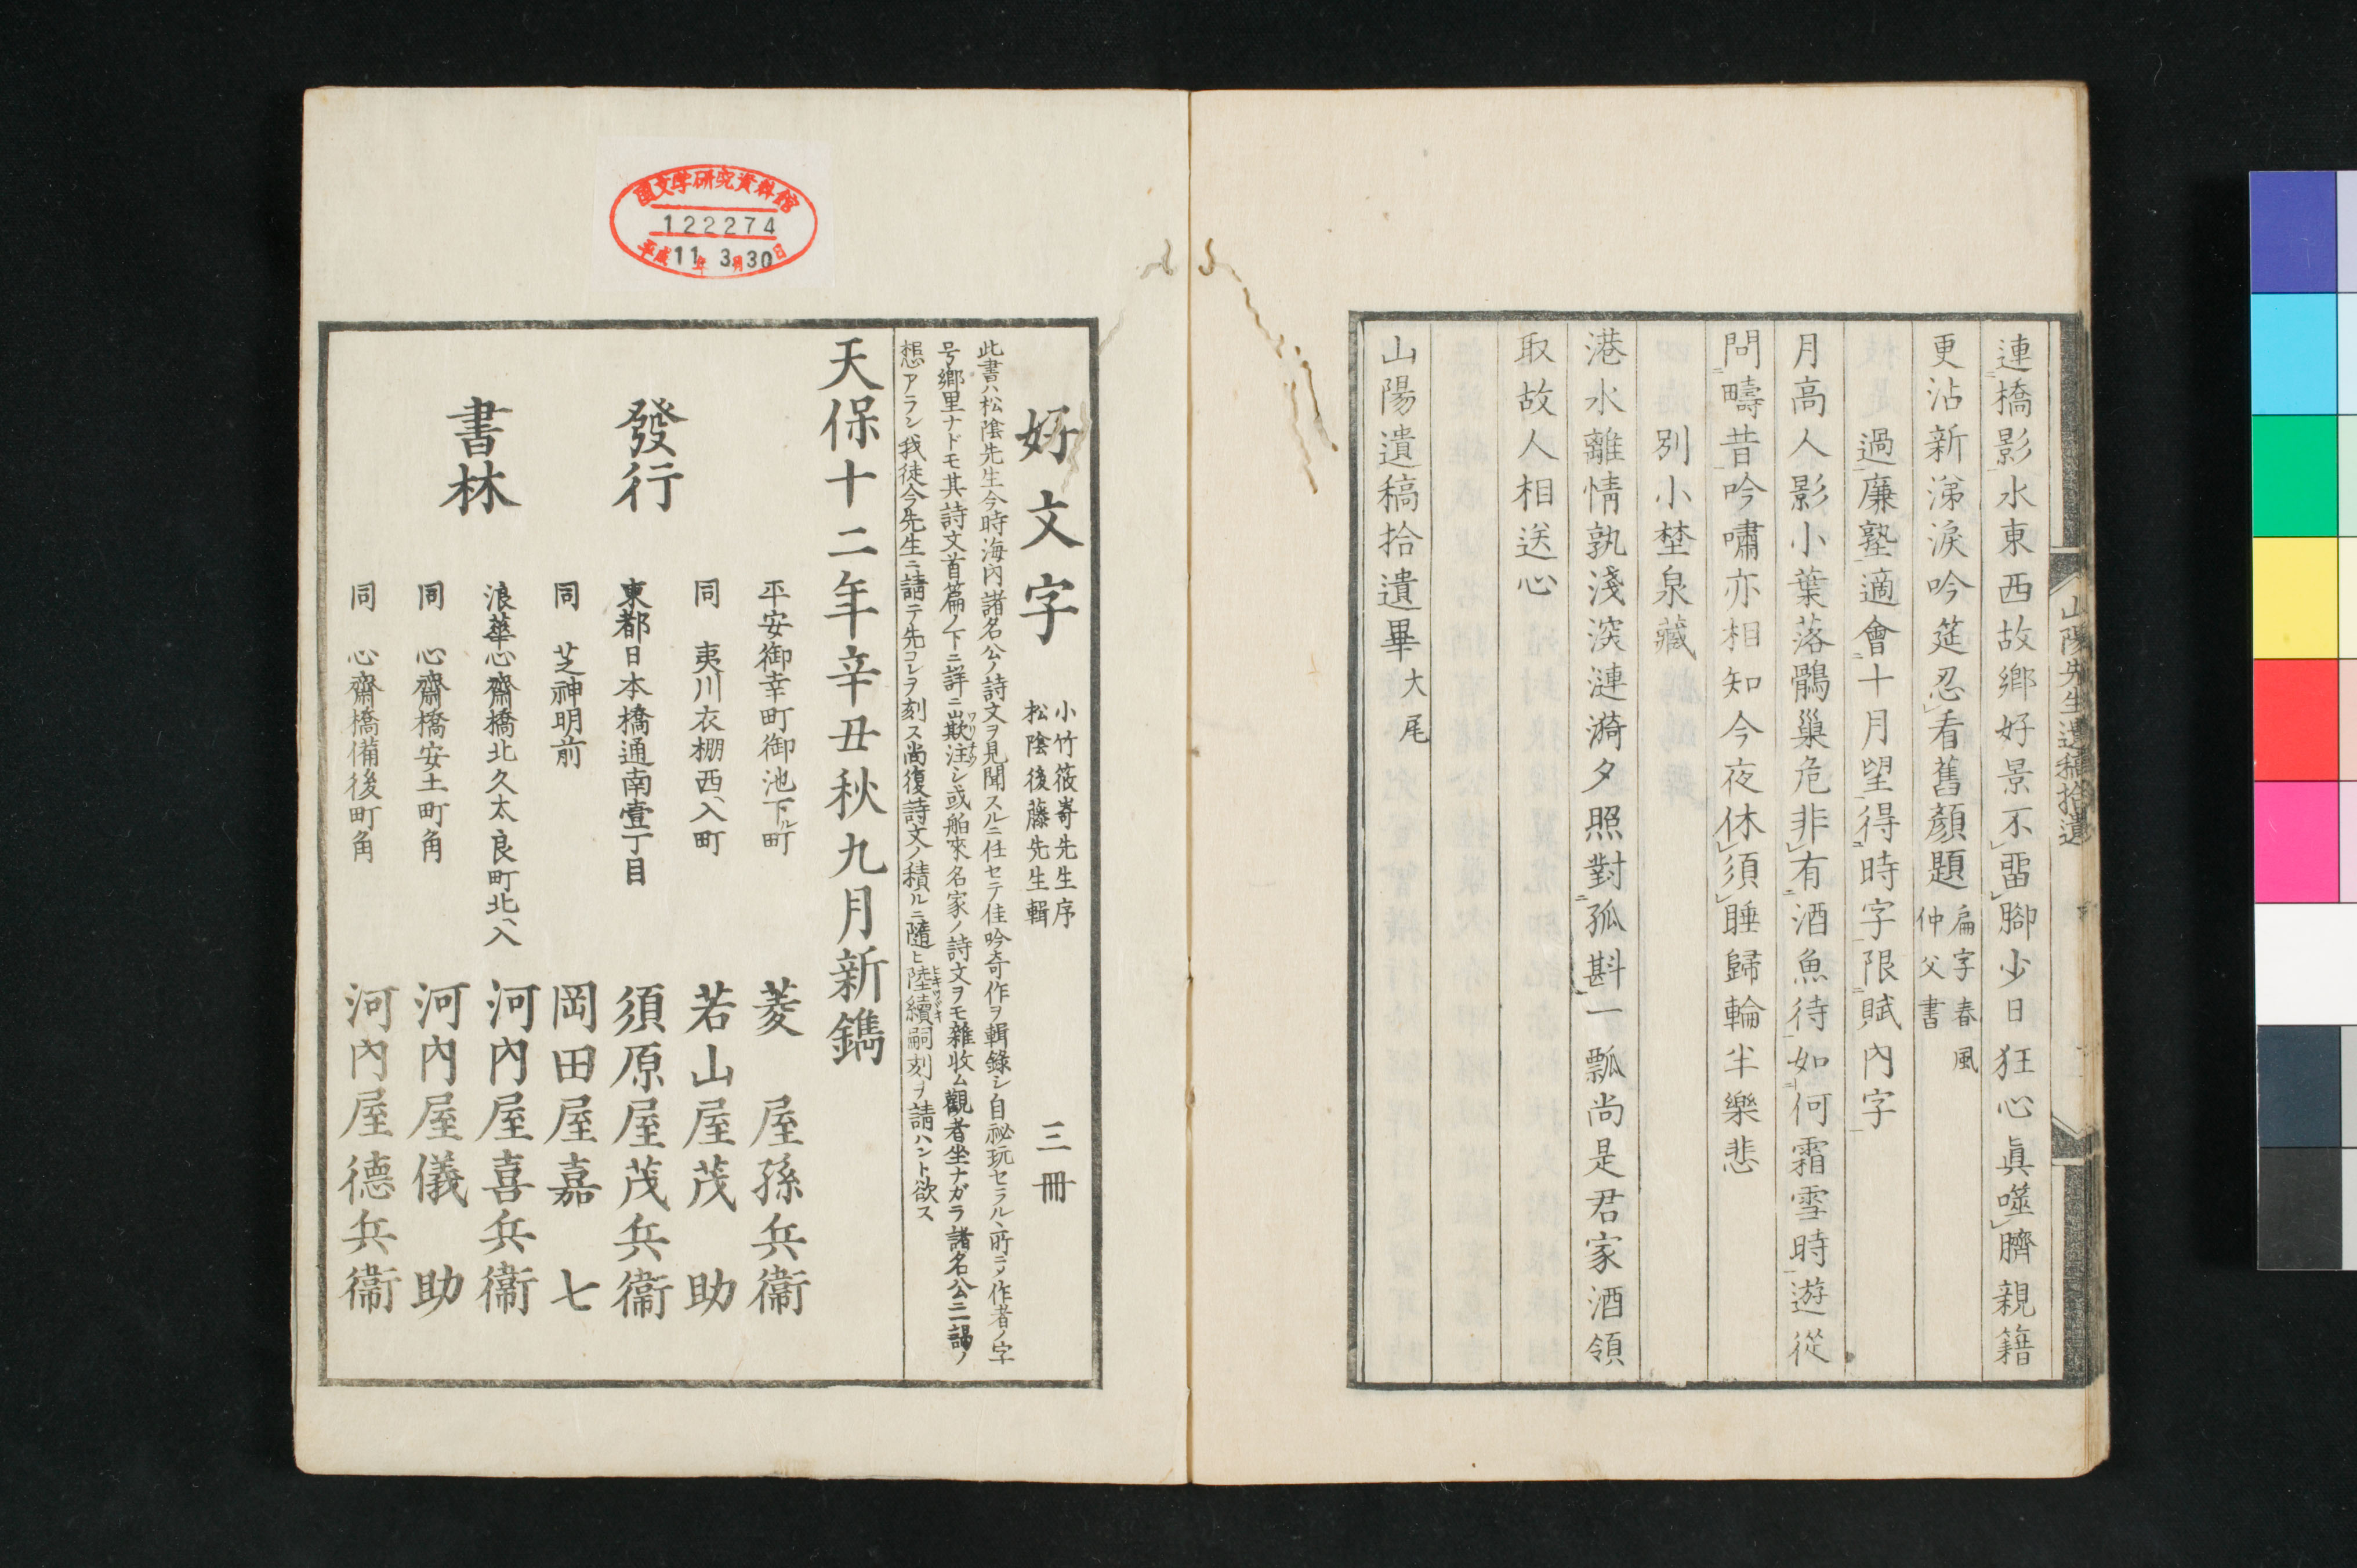 連橋影水東西故鄉好景不留腳少日狂心眞噬臍親籍
更沾新涕淚吟筵忍看舊顏題扁字春風仲父書
過廉塾適會十月望得時字限賦內字
月高人影小葉落鶻巢危非有酒魚待如何霜雪時遊從
問疇昔吟嘯亦相知今夜休須睡歸輪半樂悲
別小埜泉藏
港水離情孰淺深漣漪夕照對孤斟一瓢尚是君家酒領
取故人相送心
山陽遺稿拾遺畢大尾
山陽先生遺稿拾遺
國文学研究資料館
122274
平成11年3月30日
好文字
小竹筱嵜先生序
松陰後藤先生輯
三冊
此書ハ松陰先生今時海内諸名公ノ詩文ヲ見聞スルニ任セテ佳吟奇作ヲ輯錄シ自祕玩セラルヽ所ニテ作者ノ字
号鄉里ナドモ其詩文首篇ノ下ニ詳ニ欺注シ或舶來名家ノ詩文ヲモ雜收ム觀者坐ナガラ諸名公ニ謁ノ
想アラン我徒今先生ニ請テ先コレヲ刻ス尚復詩文ノ積ルニ隨ヒ陸續嗣刻ヲ請ハント欲ス
天保十二年辛丑秋九月新鐫
發行
書林
平安御幸町御池下ル町 菱屋孫兵衞
同 夷川衣棚西ヘ入町 若山屋茂助
東都日本橋通南壹丁目 須原屋茂兵衞
同 芝神明前 岡田屋嘉七
浪華心齋橋北久太良町北ヘ入 河内屋喜兵衞
同 心齋橋安土町角 河内屋儀助
同 心齋橋備後町角 河内屋德兵衞